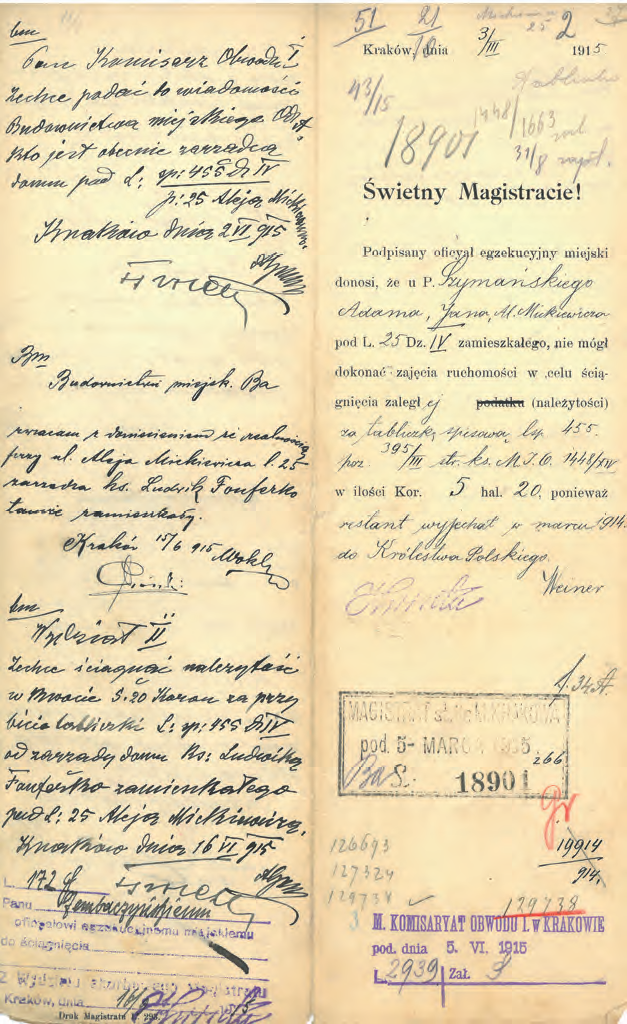 bm
Pan Komisarz Obwodu I
Zechce podać do wiadomości
Budownictwa miejskiego Odt.
kto jest obecnie zarządcą
domu pod L: sp: 455 Dz IV
p: 25 Aleja Mickiewicza
Kraków dnia 2 VI 915
Bm
Budownictwu miejsk. Ba
zwracam z doniesieniem że realnością
przy ul. Aleja Mickiewicza l. 25
zarządza ks. Ludwik Fonferko
tamże zamieszkały.
Kraków 15/6 915
bm
Wydział II
Zechce ściągnąć należytość
w kwocie 5·20 Koron za przy
bicie tabliczki L: sp: 455 Dz IV
od zarządcy domu ks: Ludwika
Fonferko zamieszkałego
pod L: 25 Aleja Mickiewicza,
Kraków dnia 16 VI 915
L. 172
Panu Zembaczyńskiemu
oficyałowi egzekucyjnemu miejskiemu
do ściągnięcia
Z Wydziału skarbowego Magistratu
Kraków, dnia 16/
Druk Magistratu l. 293.
51 21 2 37
25
Kraków, dnia 3/III 1915
43/15
18901 1448/1663
31/8
Świetny Magistracie!
Podpisany oficyał egzekucyjny miejski
donosi, że u P. Szymańskiego
Adama, Jana, Al. Mickiewicza
pod L. 25 Dz. IV zamieszkałego, nie mógł
dokonać zajęcia ruchomości w celu ścią-
gnięcia zaległej podatku (należytości)
za tabliczkę spisową lsp. 455.
poz. 395/III str. ks. M.I.O. 1448/XIV
w ilości Kor. 5 hal. 20, ponieważ
restant wyjechał w marcu 1914.
do Królestwa Polskiego.
Weiner
MAGISTRAT st. kr. M. KRAKOWA
pod. 5- MARCA 1915
266
18901
gr
126693
127324
129738
19914
914.
129738
M. KOMISARYAT OBWODU I. W KRAKOWIE
pod. dnia 5. VI. 1915
L. 2939 Zał.